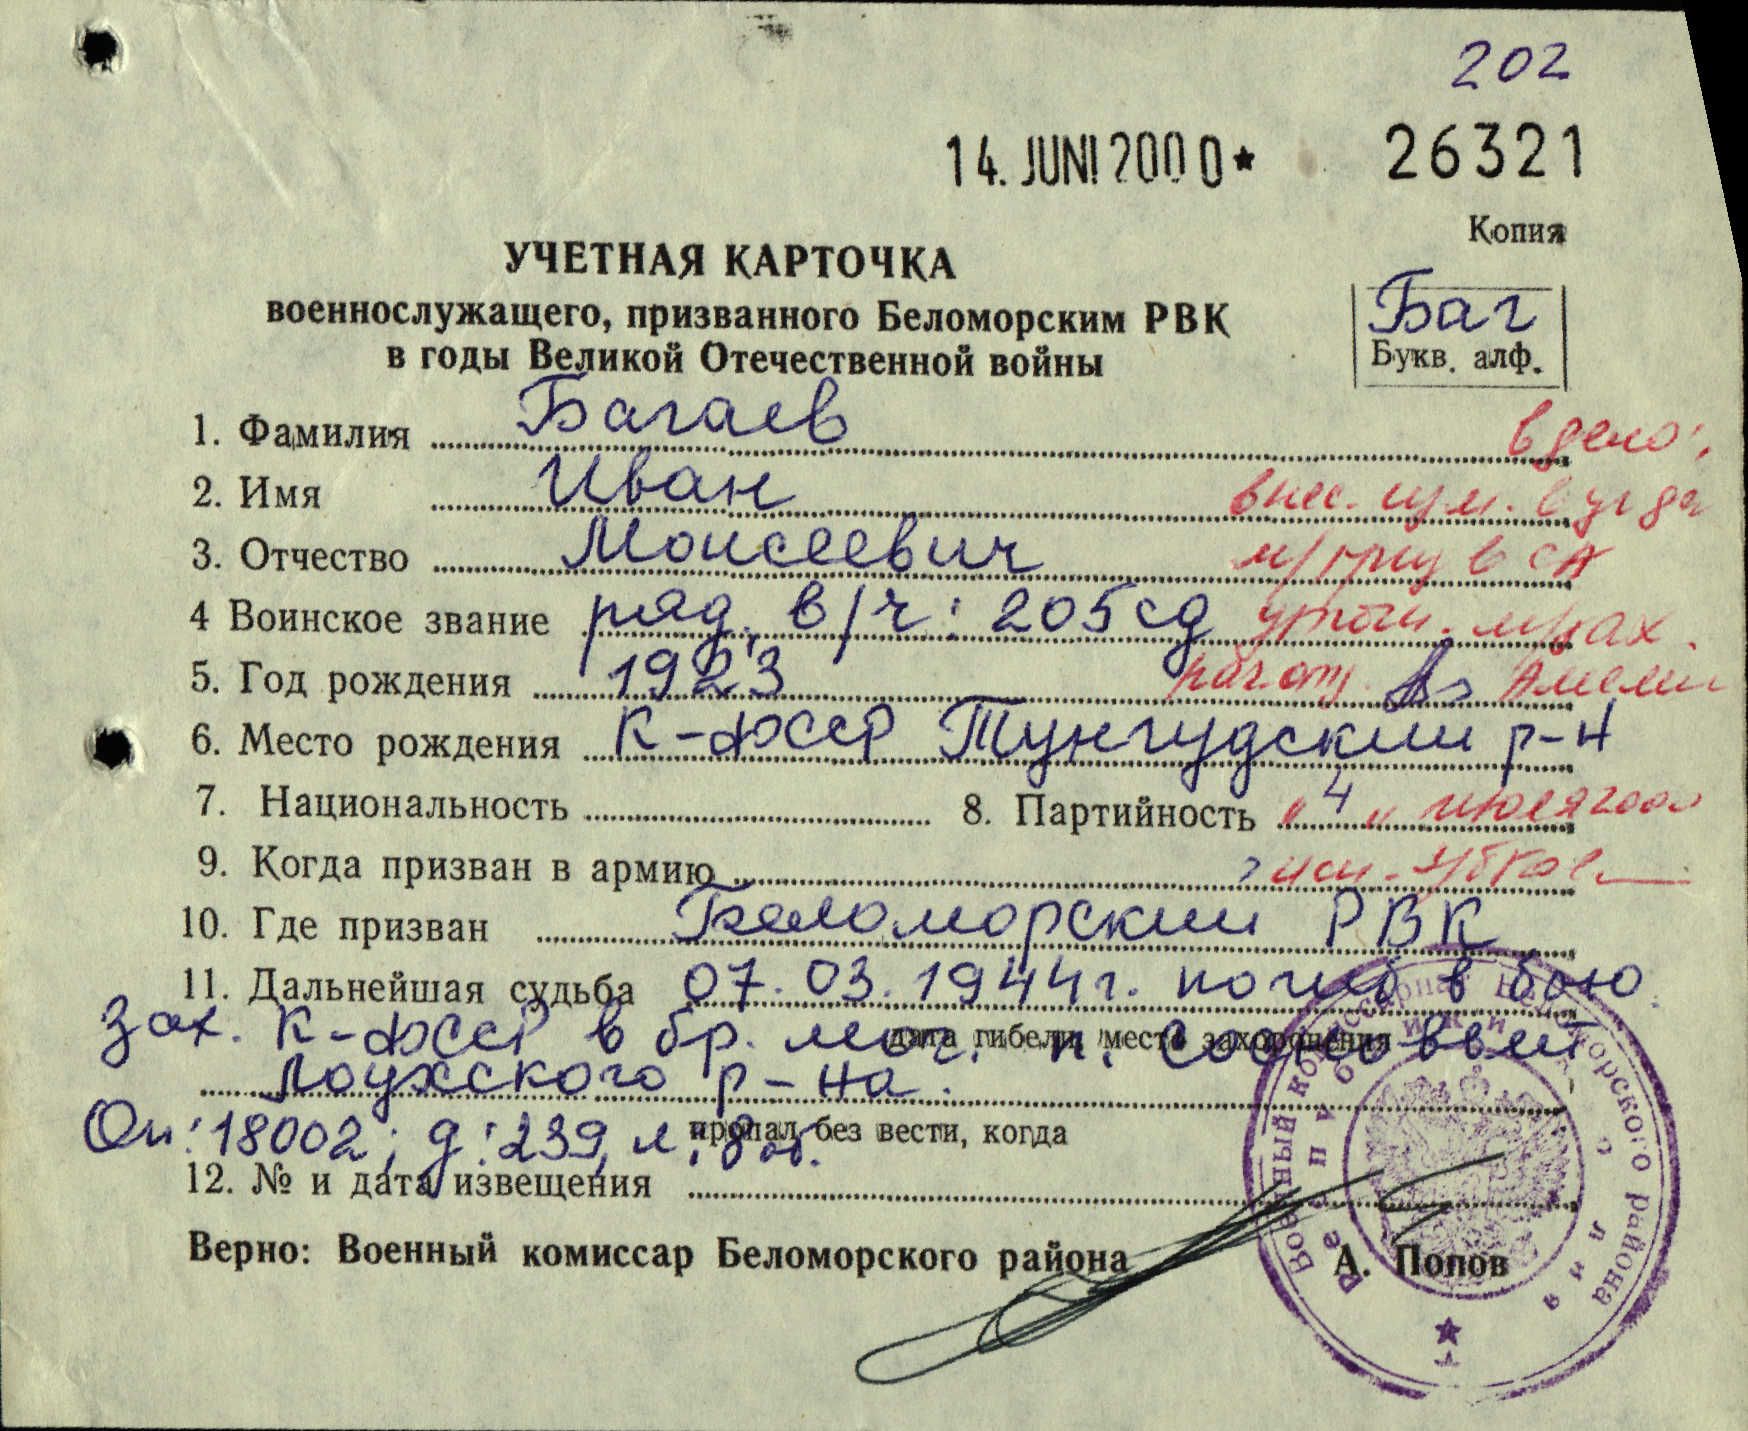 202
14. JUNI 2000★ 26321
Копия
УЧЕТНАЯ КАРТОЧКА
военнослужащего, призванного Беломорским РВК
в годы Великой Отечественной войны
Баг
Букв. алф.
1. Фамилия Багаев
2. Имя Иван
внес. изм. в
3. Отчество Моисеевич
в СА
4 Воинское звание ряд., в/ч: 205 сд
5. Год рождения 1923
6. Место рождения К-ФССР Тунгудский р-н
7. Национальность 8. Партийность "4" июля 2000
9. Когда призван в армию
10. Где призван Беломорский РВК
11. Дальнейшая судьба 07.03.1944г. погиб в бою
дата гибели, место захоронения
зах. К-ФССР в бр. мог. п. Сосновый
Лоухского р-на.
пропал без вести, когда
Оп: 18002; д: 239, л: 8 об.
12. № и дата извещения
Верно: Военный комиссар Беломорского района А. Попов
Военный комиссариат Беломорского района
Республика Карелия